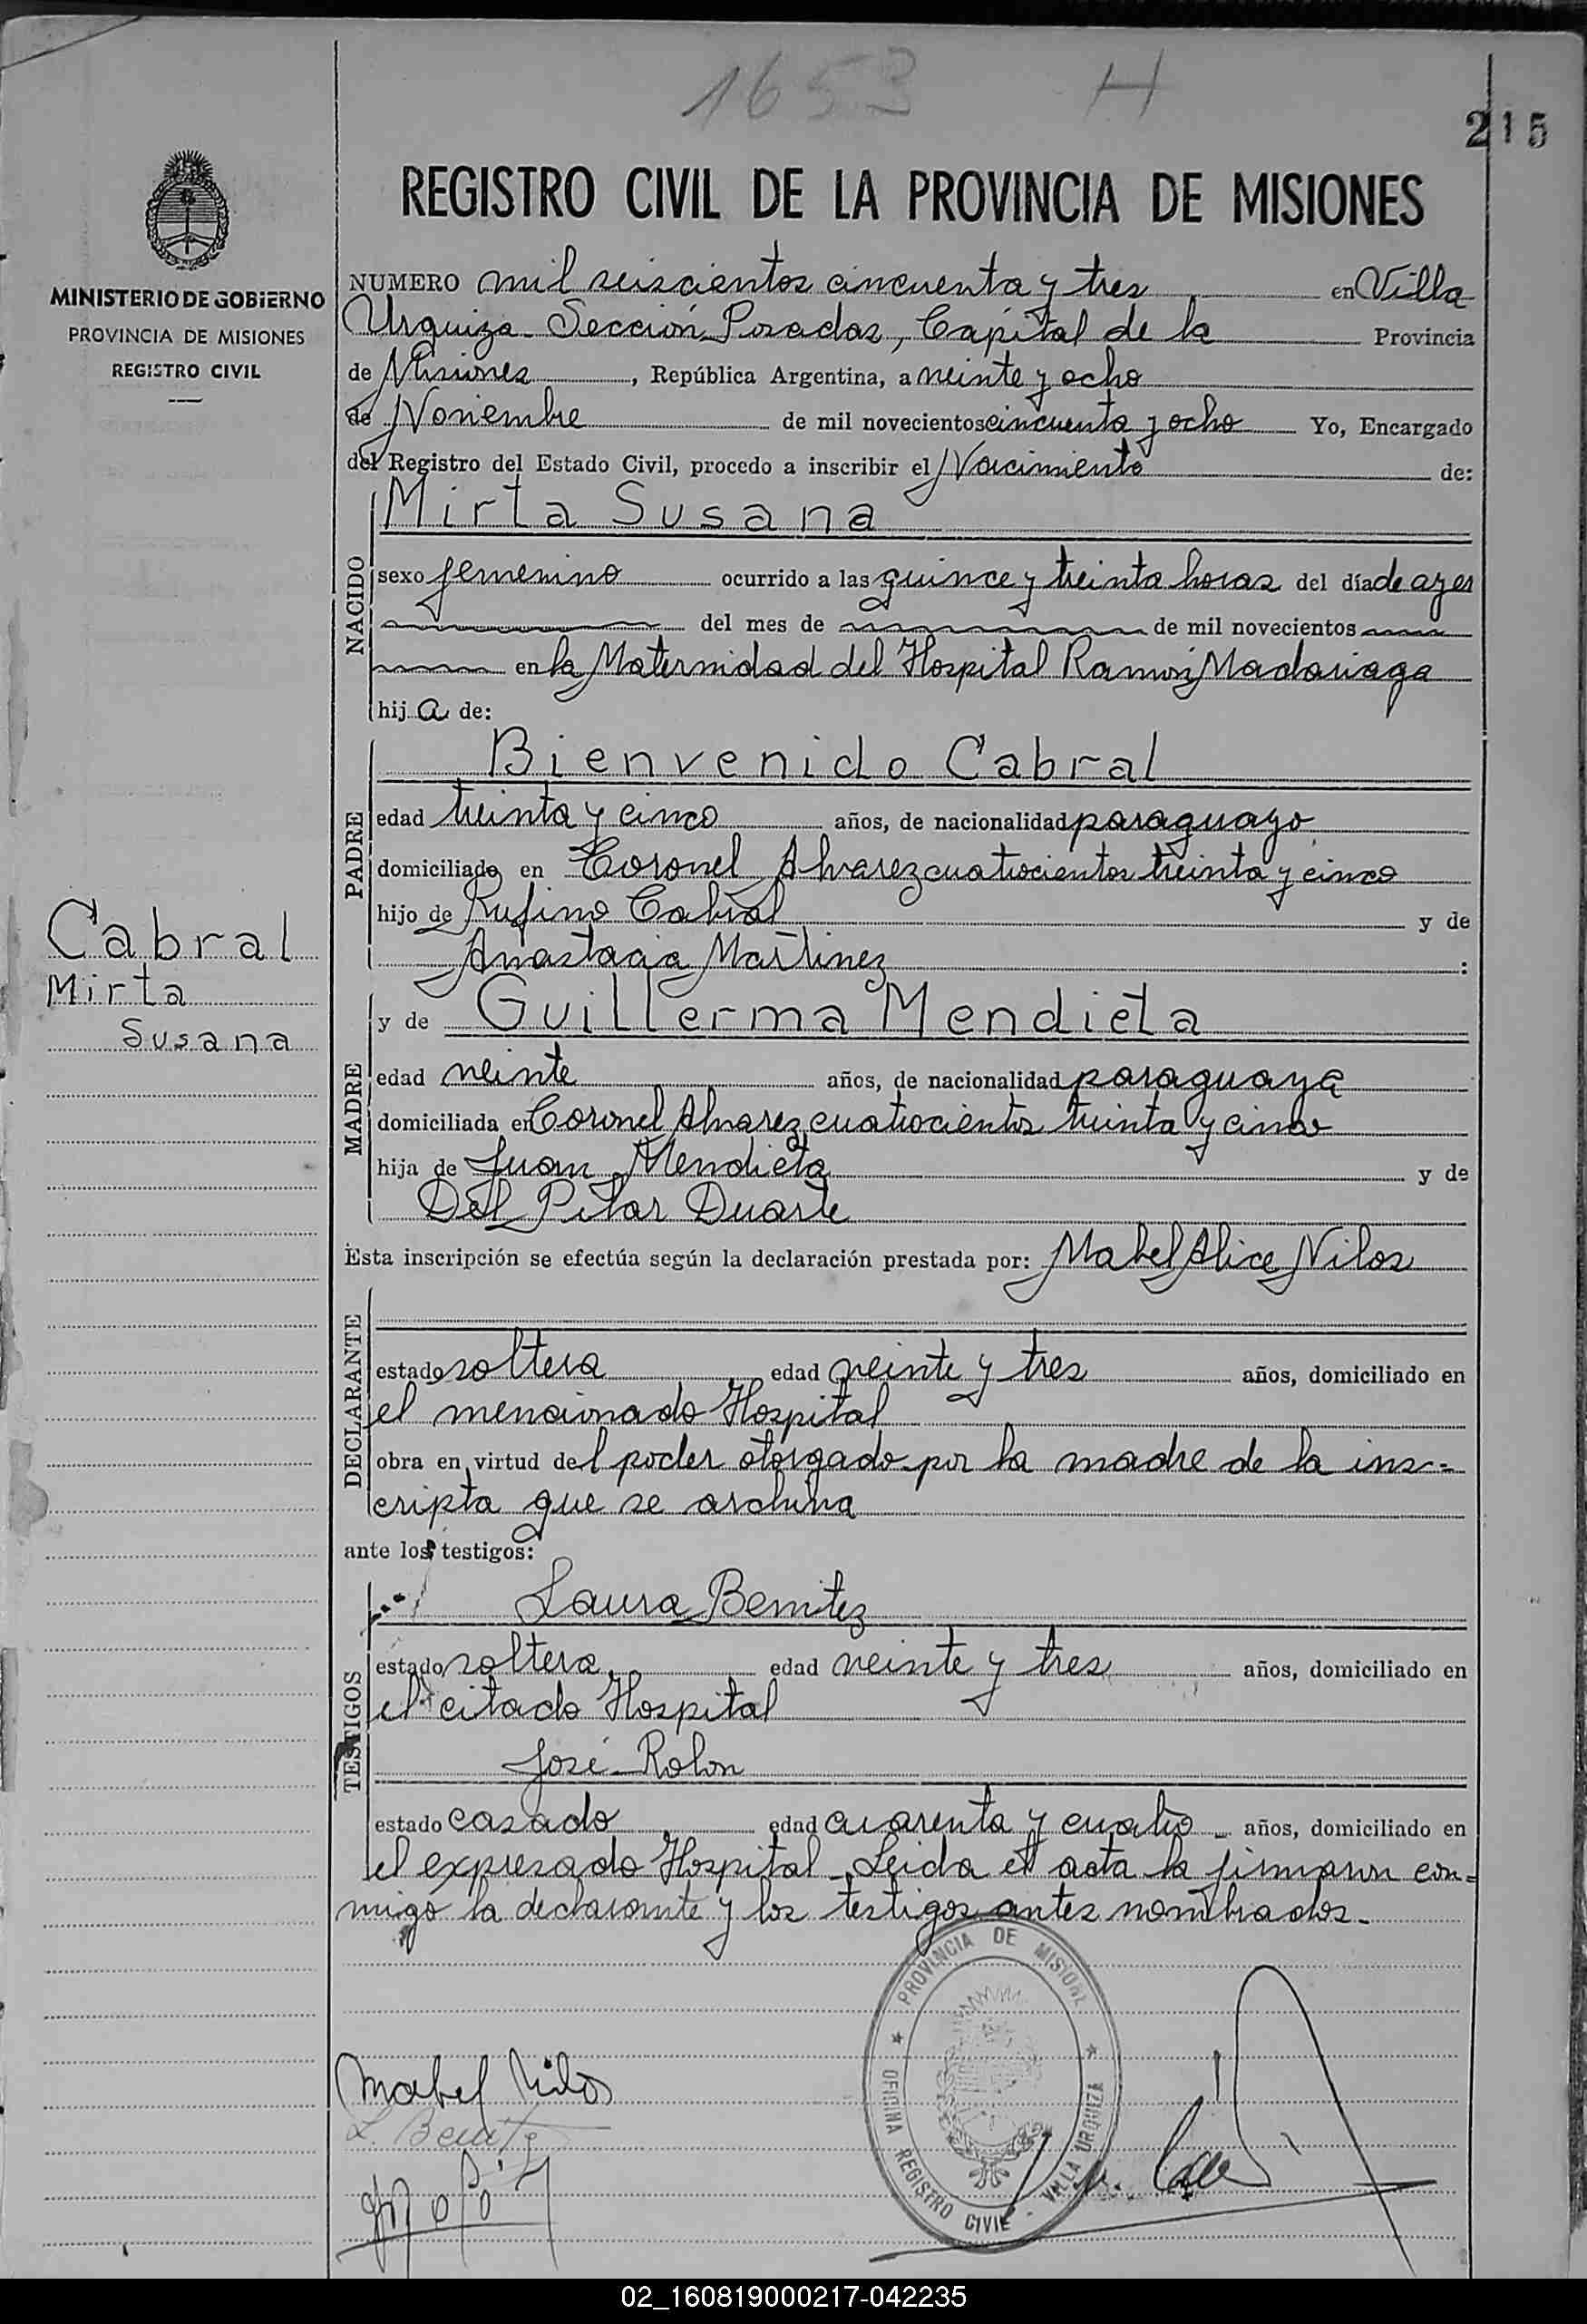 1653 H
215
REGISTRO CIVIL DE LA PROVINCIA DE MISIONES
MINISTERIO DE GOBIERNO
PROVINCIA DE MISIONES
REGISTRO CIVIL
NUMERO mil seiscientos cincuenta y tres en Villa
Urquiza Sección Posadas, Capital de la Provincia
de Misiones, República Argentina, a veinte y ocho
de Noviembre de mil novecientos cincuenta y ocho Yo, Encargado
del Registro del Estado Civil, procedo a inscribir el Nacimiento de:
NACIDO
Mirta Susana
sexo femenino ocurrido a las quince y treinta horas del día de ayer
del mes de de mil novecientos
en la Maternidad del Hospital Ramón Madariaga
hija de:
PADRE
Bienvenido Cabral
edad treinta y cinco años, de nacionalidad paraguayo
domiciliado en Coronel Alvarez cuatrocientos treinta y cinco
hijo de Rufino Cabral y de
Anastacia Martinez :
Cabral
Mirta
Susana
MADRE
y de Guillerma Mendieta
edad veinte años, de nacionalidad paraguaya
domiciliada en Coronel Alvarez cuatrocientos treinta y cinco
hija de Juan Mendieta y de
Del Pilar Duarte
Esta inscripción se efectúa según la declaración prestada por: Mabel Alice Nilos
DECLARANTE
estado soltera edad veinte y tres años, domiciliado en
el mencionado Hospital
obra en virtud del poder otorgado por la madre de la ins-
cripta que se archiva
ante los testigos:
TESTIGOS
Laura Benitez
estado soltera, edad veinte y tres años, domiciliado en
el citado Hospital
José Rolon
estado casado edad cuarenta y cuatro años, domiciliado en
el expresado Hospital Leida el acta la firmaron con-
migo la declarante y los testigos antes nombrados.
PROVINCIA DE MISIONES
OFICINA REGISTRO CIVIL - VILLA URQUIZA
Mabel Nilos
L. Benitez
02_160819000217-042235